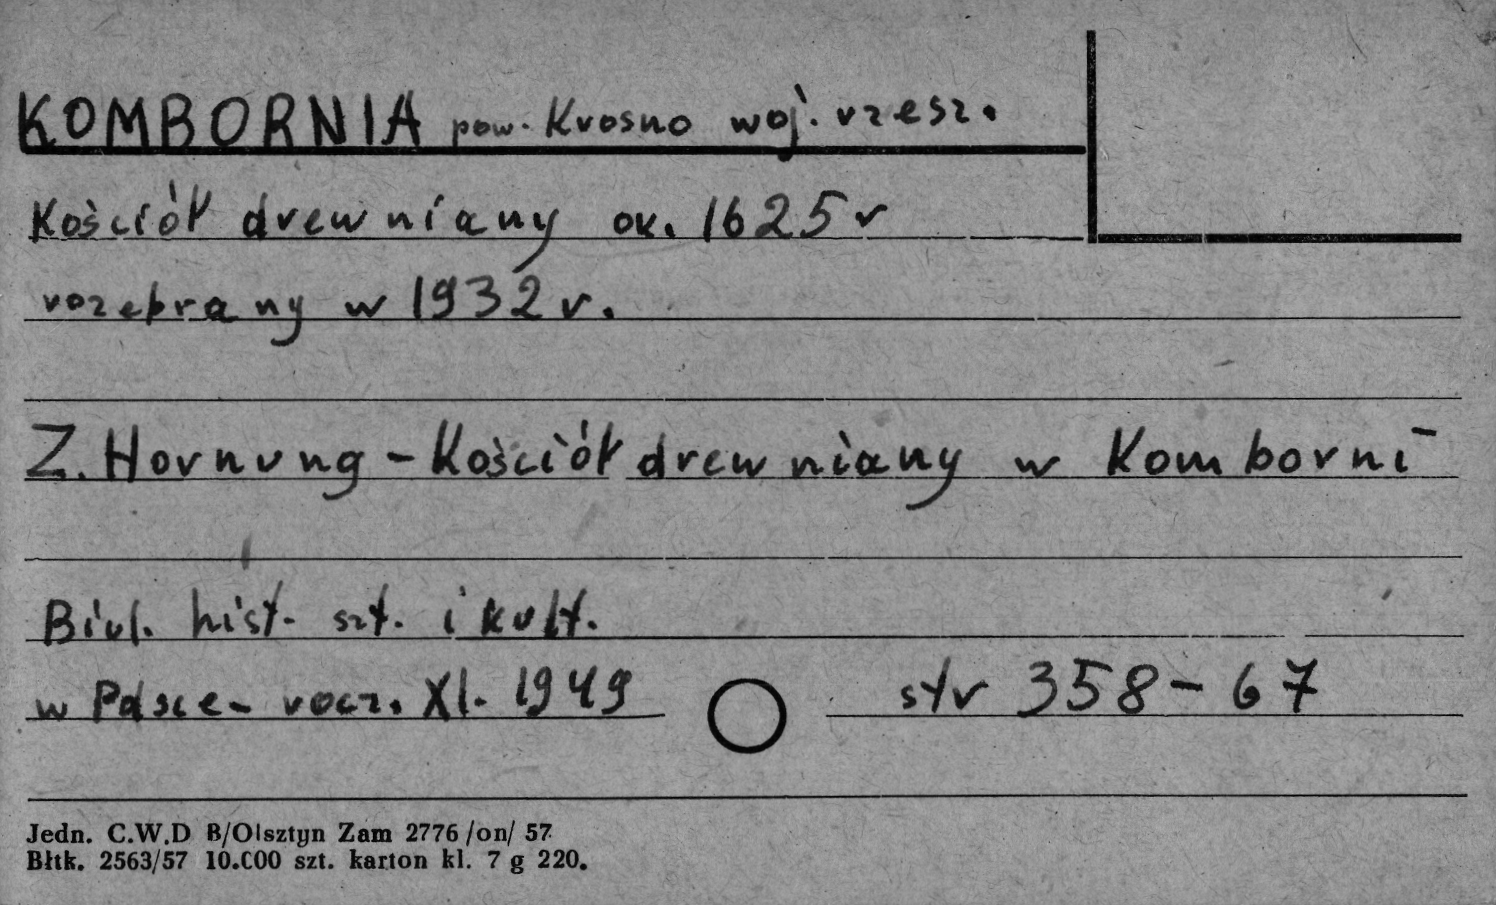 KOMBORNIA pow. Krosno woj. rzesz.
Kościół drewniany ok. 1625 r
rozebrany w 1932 r.
Z. Hornung - Kościół drewniany w Komborni
Biul. hist. szt. i kult.
w Polsce - rocz. XI. 1949 str 358-67
Jedn. C.W.D B/Olsztyn Zam 2776 /on/ 57
Błtk. 2563/57 10.000 szt. karton kl. 7 g 220.